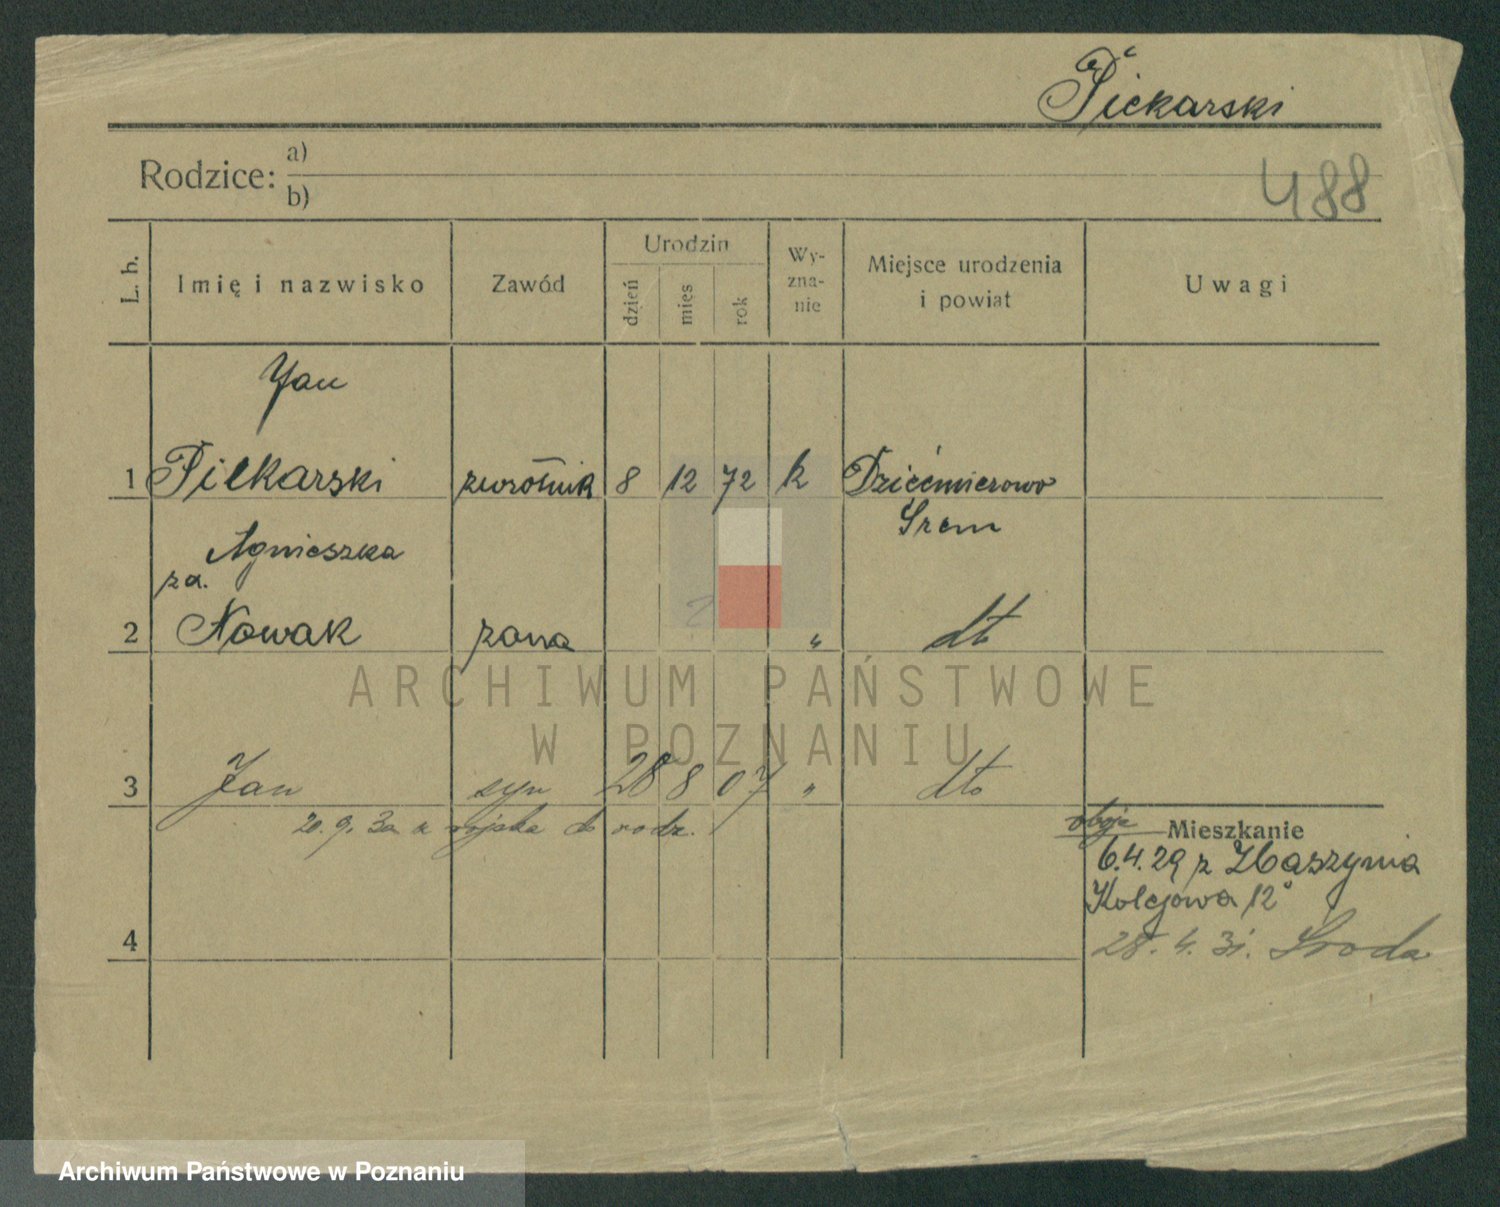 Piekarski
Rodzice: a)
b)
488
L. b. Imię i nazwisko Zawód Urodzin dzień mies rok Wy-zna-nie Miejsce urodzenia i powiat Uwagi
Jan
1 Piekarski zwrotnik 8 12 72 k Dziećmierowo
Śrem
Agnieszka
za.
2 Nowak żona " dto
3 Jan syn 28 8 07 " dto
20. 9. 30 z wojska do rodz.
oboje Mieszkanie
6.4.29 z Zbaszynia
Kolejowa 12
4
28. 4. 31. Środa
ARCHIWUM PAŃSTWOWE
W POZNANIU
Archiwum Państwowe w Poznaniu